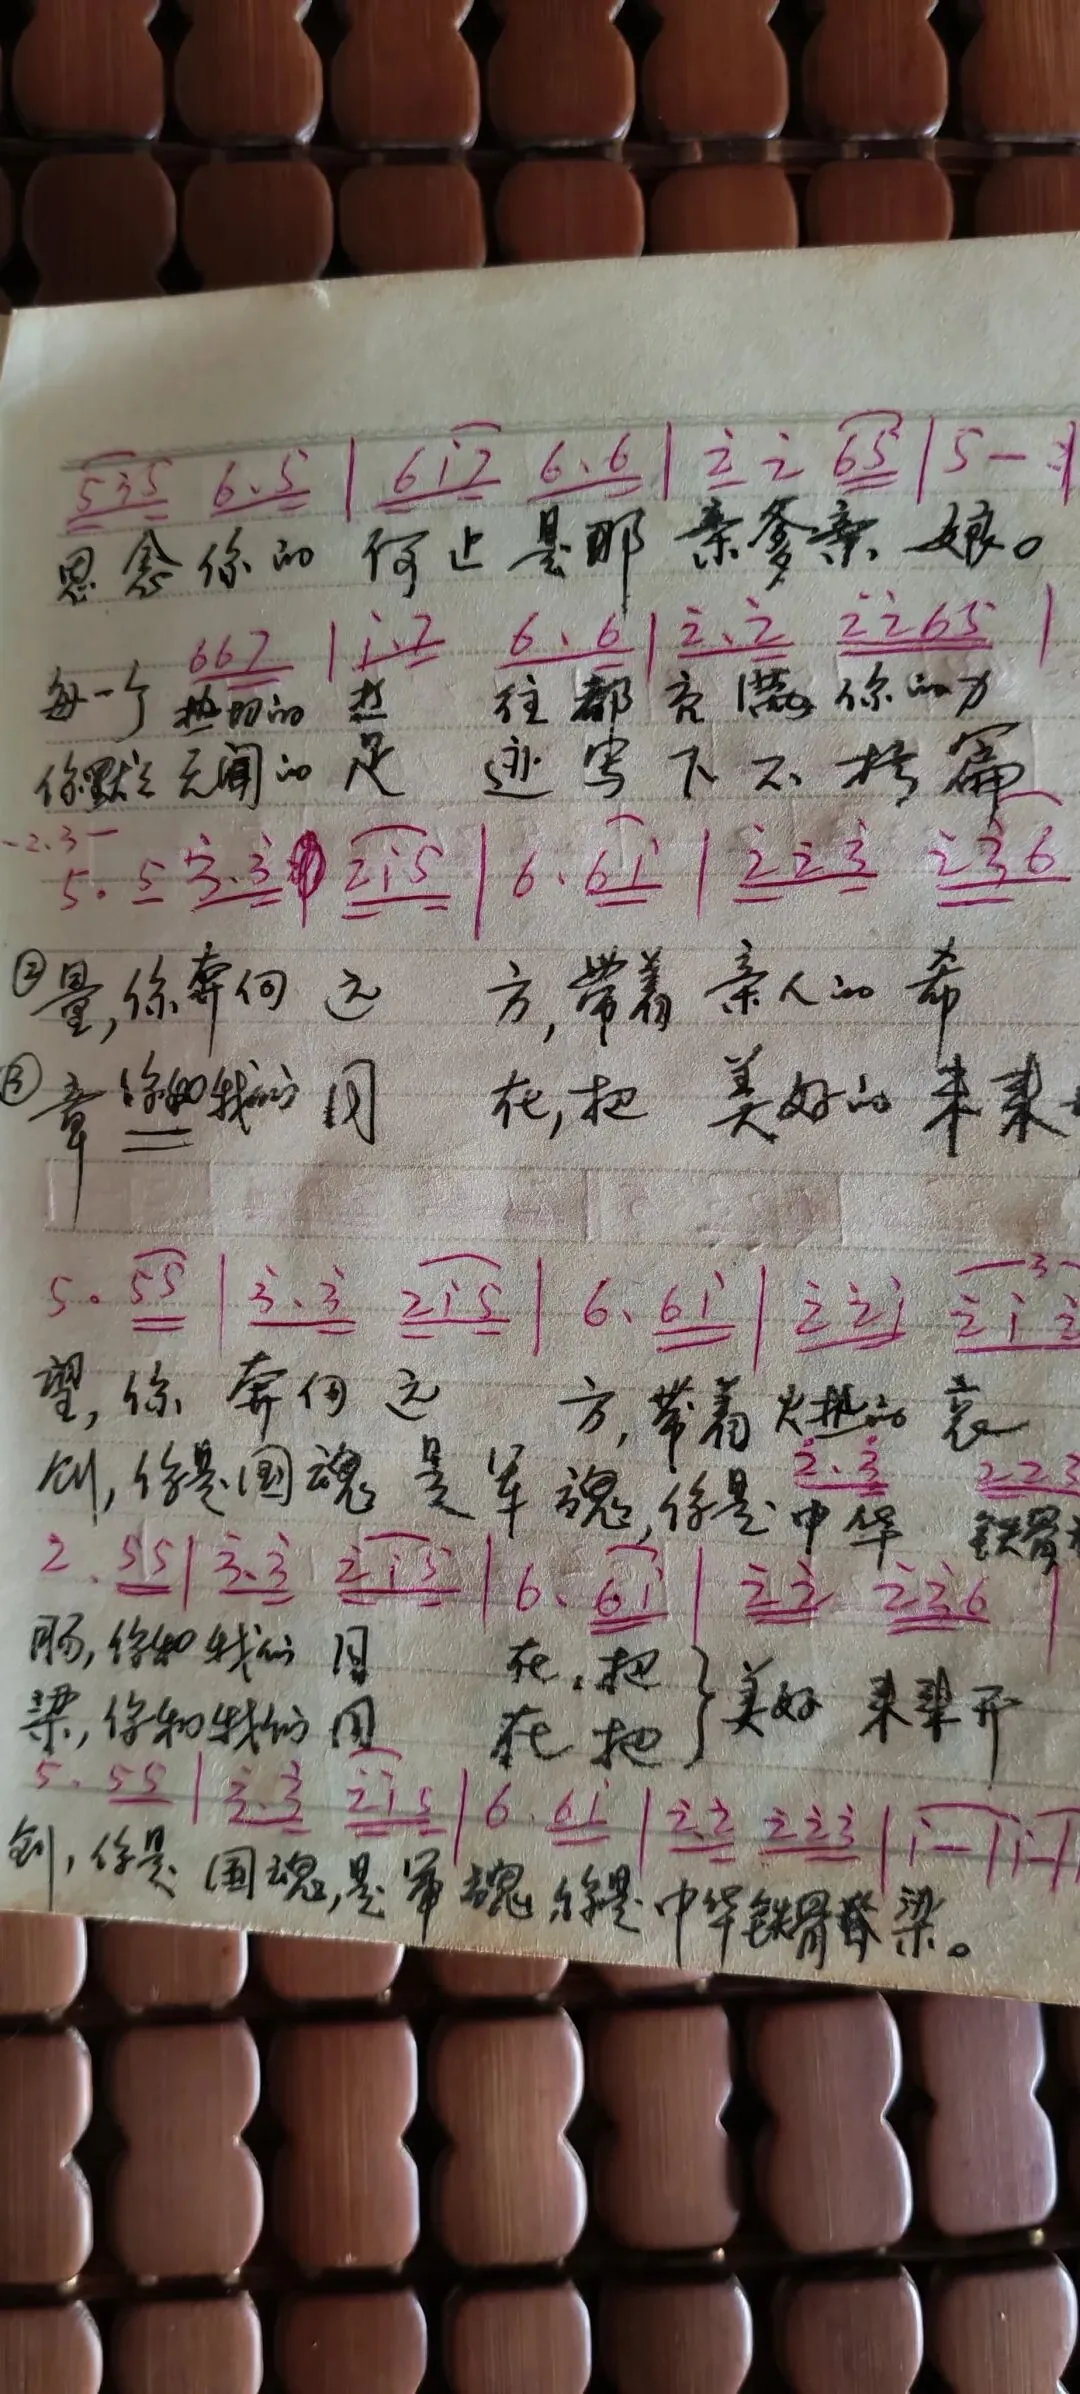 5 3 5 6. 5 | 6 i 7 6. 6 | 2 2 6 5 | 5 -
思念你的何止是那亲爹亲娘。
6 6 7 | i. 7 6. 6 | 2. 2 2 2 6 5 |
每一个热切的想往都充满你的力
你默无闻的足迹写下不朽篇
-2.3-
5. 5 3. 3 2 i 5 | 6. 6 i | 2 2 3 2 3 6
② 量,你奔向远方,带着亲人的希
③ 章你和我们同在,把美好的未来
5. 5 5 | 3. 3 2 i 5 | 6. 6 i | 2 2 i 2 i 2
望,你奔向远方,带着火热的衷
创,你是国魂是军魂,你是中华铁骨
2. 3 2 2 3
2. 5 5 | 3. 3 2 i 5 | 6. 6 i | 2 2 2 3 6 |
肠,你和我们同在,把
梁,你和我们同在把
美好未来开
5. 5 5 | 3. 3 2 i 5 | 6. 6 i | 2. 2 2 2 3 | i - | i - |
创,你是国魂,是军魂你是中华铁骨脊梁。